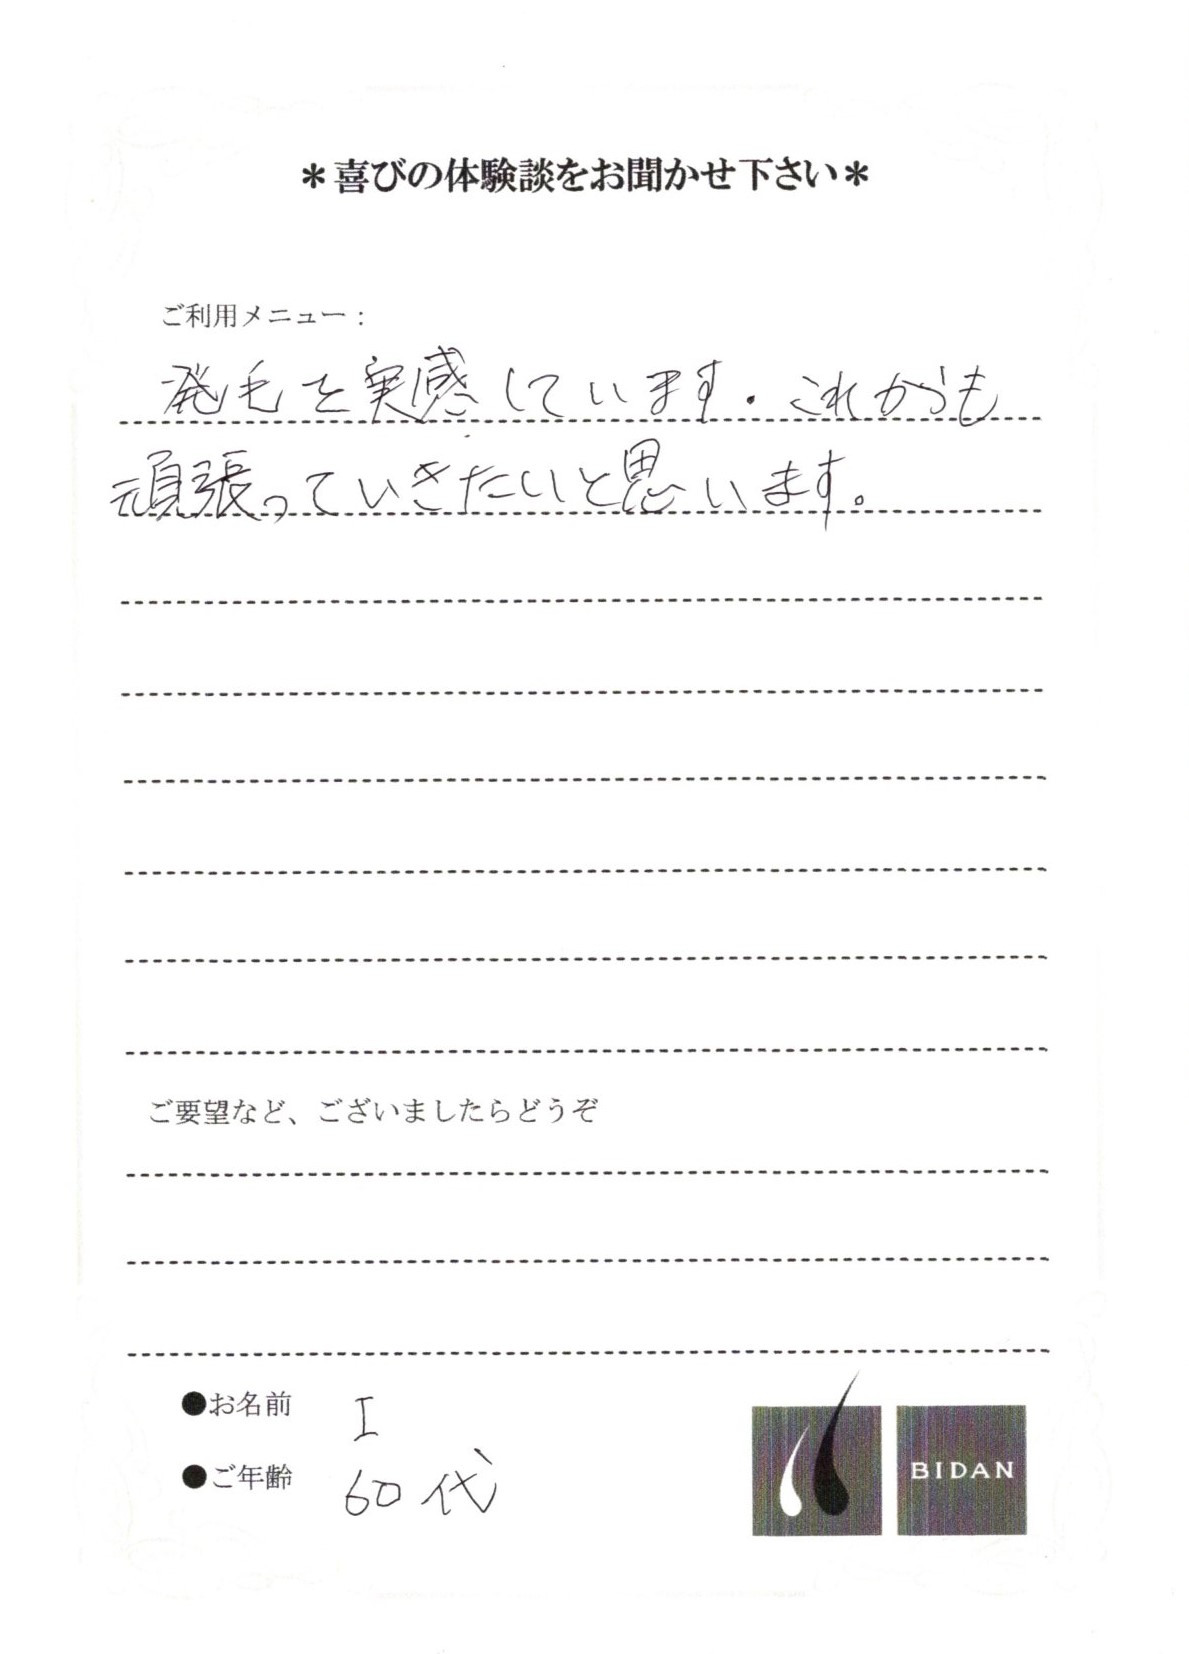 ＊喜びの体験談をお聞かせ下さい＊
ご利用メニュー：
発毛を実感しています．これからも
頑張っていきたいと思います。
ご要望など、ございましたらどうぞ
●お名前 I
●ご年齢 60代
BIDAN